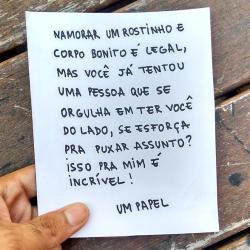 NAMORAR UM ROSTINHO E
CORPO BONITO É LEGAL,
MAS VOCÊ JÁ TENTOU
UMA PESSOA QUE SE
ORGULHA EM TER VOCÊ
DO LADO, SE ESFORÇA
PRA PUXAR ASSUNTO?
ISSO PRA MIM É
INCRÍVEL!
UM PAPEL